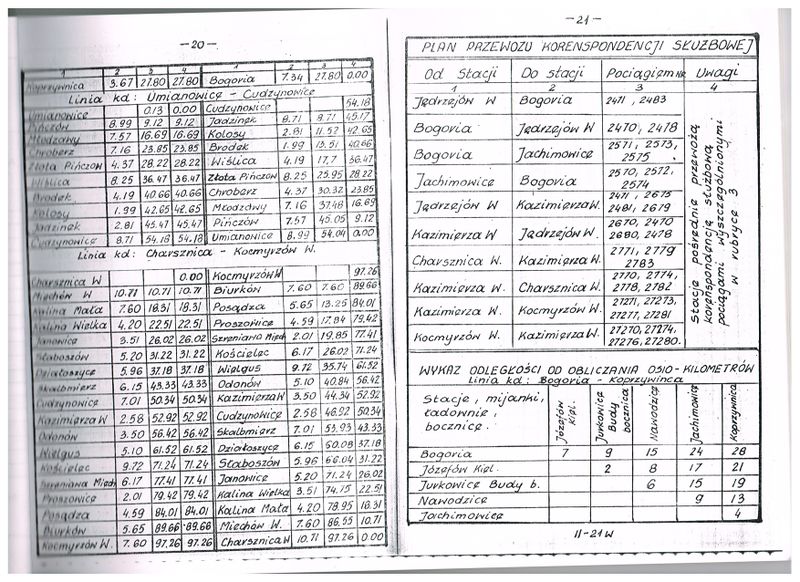 -20-
1 2 3 4 1 2 3 4
Koprzywnica 3.67 27.80 27.80 Bogoria 7.34 27.80 0.00
Linia kd: Umianowice - Cudzynowice
Umianowice 0.13 0.00 Cudzynowice 54.18
Pińczów 8.99 9.12 9.12 Jadzinek 8.71 8.71 45.17
Młodzawy 7.57 16.69 16.69 Kolosy 2.81 11.52 42.65
Chroberz 7.16 23.85 23.85 Brodek 1.99 13.51 40.66
Złota Pińczow 4.37 28.22 28.22 Wiślica 4.19 17,7 36.47
Wiślica 8.25 36.47 36.47 Złota Pińczow 8.25 25.95 28.22
Brodek 4.19 40.66 40.66 Chroberz 4.37 30.32 23.85
Kolosy 1.99 42.65 42.65 Młodzawy 7.16 37.48 16.69
Jadzinek 2.81 45.47 45.47 Pińczów 7.57 45.05 9.12
Cudzynowice 8.71 54.18 54.18 Umianowice 8.99 54.04 0.00
Linia kd: Charsznica - Kocmyrzów W.
Charsznica W 0.00 Kocmyrzów W 97.26
Miechów W 10.71 10.71 10.71 Biurków 7.60 7.60 89.66
Kalina Mała 7.60 18.31 18.31 Posądza 5.65 13.25 84.01
Kalina Wielka 4.20 22.51 22.51 Proszowice 4.59 17.84 79.42
Janowice 3.51 26.02 26.02 Szreniawa Miech 2.01 19.85 77.41
Słaboszów 5.20 31.22 31.22 Kościelec 6.17 26.02 71.24
Działoszyce 5.96 37.18 37.18 Wielgus 9.72 35.74 61.52
Skalbmierz 6.15 43.33 43.33 Odonów 5.10 40.84 56.42
Cudzynowice 7.01 50.34 50.34 Kazimierza W 3.50 44.34 52.92
Kazimierza W 2.58 52.92 52.92 Cudzynowice 2.58 46.92 50.34
Odonów 3.50 56.42 56.42 Skalbmierz 7.01 53.93 43.33
Wielgus 5.10 61.52 61.52 Działoszyce 6.15 60.08 37.18
Kościelec 9.72 71.24 71.24 Słaboszów 5.96 66.04 31.22
Szreniawa Miech 6.17 77.41 77.41 Janowice 5.20 71.24 26.02
Proszowice 2.01 79.42 79.42 Kalina Wielka 3.51 74.75 22.51
Posądza 4.59 84.01 84.01 Kalina Mała 4.20 78.95 18.31
Biurków 5.65 89.66 89.66 Miechów W. 7.60 86.55 10.71
Kocmyrzów W. 7.60 97.26 97.26 Charsznica W 10.71 97.26 0.00
-21-
PLAN PRZEWOZU KORENSPONDENCJI SŁUŻBOWEJ
Od Stacji Do stacji Pociągiem Nr Uwagi
1 2 3 4
Jędrzejów W Bogoria 2471, 2483
Bogoria Jędrzejów W 2470, 2478
Bogoria Jachimowice 2571, 2573,
2575
Jachimowice Bogoria 2570, 2572,
2574
Jędrzejów W Kazimierza W. 2471, 2675
2481, 2679
Kazimierza W Jędrzejów W. 2670, 2470
2680, 2478
Charsznica W. Kazimierza W. 2771, 2779
2783
Kazimierza W. Charsznica W. 2770, 2774,
2778, 2782
Kazimierza W. Kocmyrzów W. 27271, 27273,
27277, 27281
Kocmyrzów W. Kazimierza W. 27270, 27274,
27276, 27280.
Stacje pośrednie przewożą
korenspondencję służbową
pociągami wyszczególnionymi
w rubryce 3
WYKAZ ODLEGŁOŚCI OD OBLICZANIA OSIO-KILOMETRÓW
Linia kd: Bogoria - Koprzywinca
Stacje, mijanki,
ładownie,
bocznice.
Józefów Kiel.
Jurkowice Budy bocznica
Nawodzice
Jachimowice
Koprzywnica
Bogoria 7 9 15 24 28
Józefów Kiel. 2 8 17 21
Jurkowice Budy b. 6 15 19
Nawodzice 9 13
Jachimowice 4
II-21W